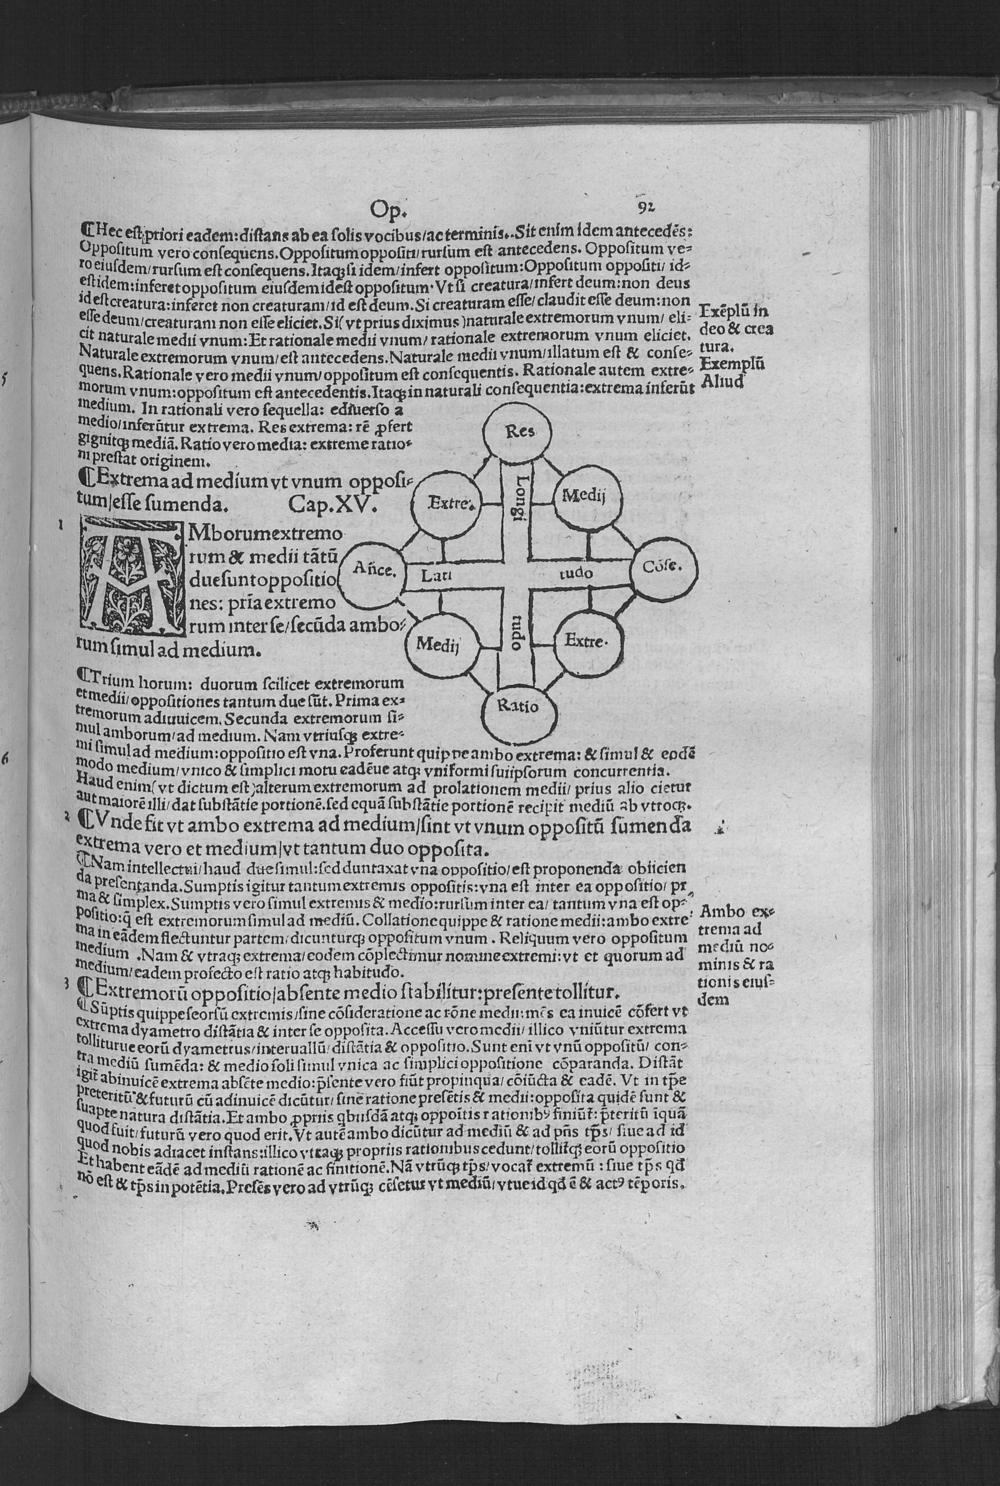 Op.
92
¶Hec est priori eadem: distans ab ea solis vocibus/ac terminis. Sit enim idem antecedēs:
Oppositum vero consequens. Oppositum oppositi/rursum est antecedens. Oppositum ve-
ro eiusdem/rursum est consequens. Itaq; si idem/infert oppositum: Oppositum oppositi/id-
est idem: inferet oppositum eiusdem idest oppositum. Vt si creatura/infert deum: non deus
id est creatura: inferet non creaturam/id est deum. Si creaturam esse/claudit esse deum: non
esse deum/creaturam non esse eliciet. Si(vt prius diximus)naturale extremorum vnum/eli-
cit naturale medii vnum: Et rationale medii vnum/rationale extremorum vnum eliciet.
Naturale extremorum vnum/est antecedens. Naturale medii vnum/illatum est & conse-
quens. Rationale vero medii vnum/oppositum est consequentis. Rationale autem extre-
morum vnum: oppositum est antecedentis. Itaq; in naturali consequentia: extrema inferūt
medium. In rationali vero sequella: ediuerso a
medio/inferūtur extrema. Res extrema: rē ꝓfert
gignitq; mediā. Ratio vero media: extreme ratio-
ni prestat originem.
Exēplū in
deo & crea
tura.
Exemplū
Aliud
5
¶Extrema ad medium vt vnum opposi-
tum/esse sumenda. Cap. XV.
1
AMborum extremo
rum & medii tātū
due sunt oppositio
nes: pria extremo
rum inter se/secūda ambo-
rum simul ad medium.
Res
Extre.
Medij
Añce.
Cōse.
Medij
Extre.
Ratio
Longi
tudo
Lati
tudo
¶Trium horum: duorum scilicet extremorum
et medii/oppositiones tantum due sūt. Prima ex-
tremorum adiuuicem. Secunda extremorum si-
mul amborum/ad medium. Nam vtriusq; extre-
mi simul ad medium: oppositio est vna. Proferunt quippe ambo extrema: & simul & eodē
modo medium/vnico & simplici motu eadēue atq; vniformi suiipsorum concurrentia.
Haud enim(vt dictum est)alterum extremorum ad prolationem medii/prius alio cietur
aut maiorē illi/dat substātie portionē. sed equā substātie portionē recipit mediū ab vtroq;.
6
2
¶Vnde fit vt ambo extrema ad medium/sint vt vnum oppositū sumenda
extrema vero et medium/vt tantum duo opposita.
¶Nam intellectui/haud due simul: sed duntaxat vna oppositio/est proponenda obiicien
da presentanda. Sumptis igitur tantum extremis oppositis: vna est inter ea oppositio/pr
ma & simplex. Sumptis vero simul extremis & medio: rursum inter ea/tantum vna est op-
positio: q̄ est extremorum simul ad mediū. Collatione quippe & ratione medii: ambo extre
ma in eādem flectuntur partem/dicunturq; oppositum vnum. Reliquum vero oppositum
medium. Nam & vtraq; extrema/eodem cōplectimur nomine extremi: vt et quorum ad
medium/eadem profecto est ratio atq; habitudo.
Ambo ex-
trema ad
mediū no-
minis & ra
tionis eius-
dem
3
¶Extremorū oppositio/absente medio stabilitur: presente tollitur.
¶Sūptis quippe seorsū extremis/sine cōsideratione ac rōne medii: mēs ea inuicē cōfert vt
extrema dyametro distātia & inter se opposita. Accessu vero medii/illico vniūtur extrema
tolliturue eorū dyametrus/interuallū/distātia & oppositio. Sunt eni vt vnū oppositū/con-
tra mediū sumēda: & medio soli simul vnica ac simplici oppositione cōparanda. Distāt
igit̄ abinuicē extrema absēte medio: p̄sente vero fiūt propinqua/cōiūcta & eadē. Vt in tp̄e
preteritū & futurū cū adinuicē dicūtur/sine ratione presētis & medii: opposita quidē sunt &
suapte natura distātia. Et ambo ꝓpriis qbusdā atq; oppoītis rationib⁹ finiūt̄: p̄teritū īquā
quod fuit/futurū vero quod erit. Vt autē ambo dicūtur ad mediū & ad pn̄s tp̄s/siue ad id
quod nobis adiacet instans: illico vtraq; propriis rationibus cedunt/tollit̄q; eorū oppositio
Et habent eādē ad mediū rationē ac finitionē. Nā vtrūq; tp̄s/vocat̄ extremū: siue tp̄s qd̄
nō est & tp̄s in potētia. Presēs vero ad vtrūq; cēsetur vt mediū/vtue id qd̄ ē & act⁹ tēporis.